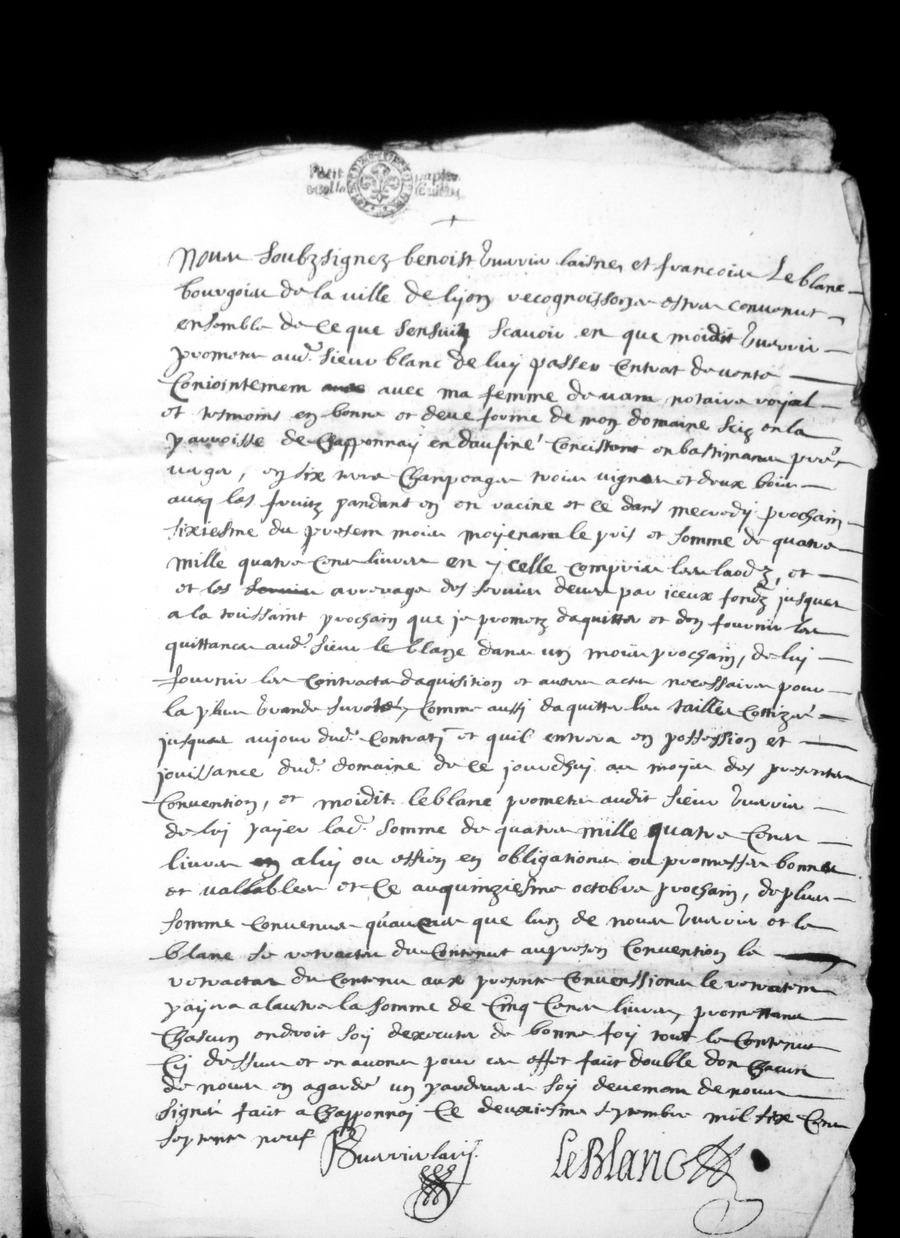 Petit papier
Nous soubzsignez benoist Guerrier laisne, et francois Le blanc
bourgois de la ville de lyon recognoissons estre convenut
ensemble de ce que sensuit scavoir en que moidit Guerrier
prometz aud. sieur blanc de luy passer contrat de vente
Coniointement avec ma femme devant notaire royal
et tesmoins en bonne et deue forme de mon domaine siz en la
parroisse de Chapponnay en daufiné concistant en bastimans prés
vergé, en six terre Champeage trois vignes et deux bois
aveq les fruitz pandant en racine et ce dans mecredy prochain
sixiesme du present mois moyenant le pris et somme de quatre
mille quatre Cens livres en y celle compris les laodz, et
et les arrerage des servis deus par iceux fondz jusques
a la toussaint prochain que je prometz daquitter et den fournir les
quittances aud. sieur le blanc dans un mois prochain, de luy
fournir les Contracts daquisition et autres actes necessaires pour
la plus grande sureté, comme aussi daquitter les tailles cottizé
jusques aujour dud. Contrat et quil entrera en possession et
jouissance dud. domaine de ce jourdhuy au moyen des presente
Convention, et moidit leblanc prometz audit sieur Guerrier
de luy payer lad. somme de quatre mille quatre Cens
livres a luy ou es sien en obligations ou promesses bonnes
et vallables et ce auquinziesme octobre prochain, de plus
somme convenus quau cas que lun de nous Guerrier et le
blanc se retracter du Contenut au presen Convention le
retracter du contenu aux presente Convenssions le
payera a lautre la somme de Cinq Cens livres, promettans
Chascun endroit soy dexecuter de bonne foy tout le Contenut
Cy dessus et en avons pour cet effet fait double don Chacun
de nous en a gardé un pardevers soy deuement de nous
signé fait a Chapponnay Ce deuxiesme septembre mil six Cens
septente neuf
Guerrier laisné LeBlanc